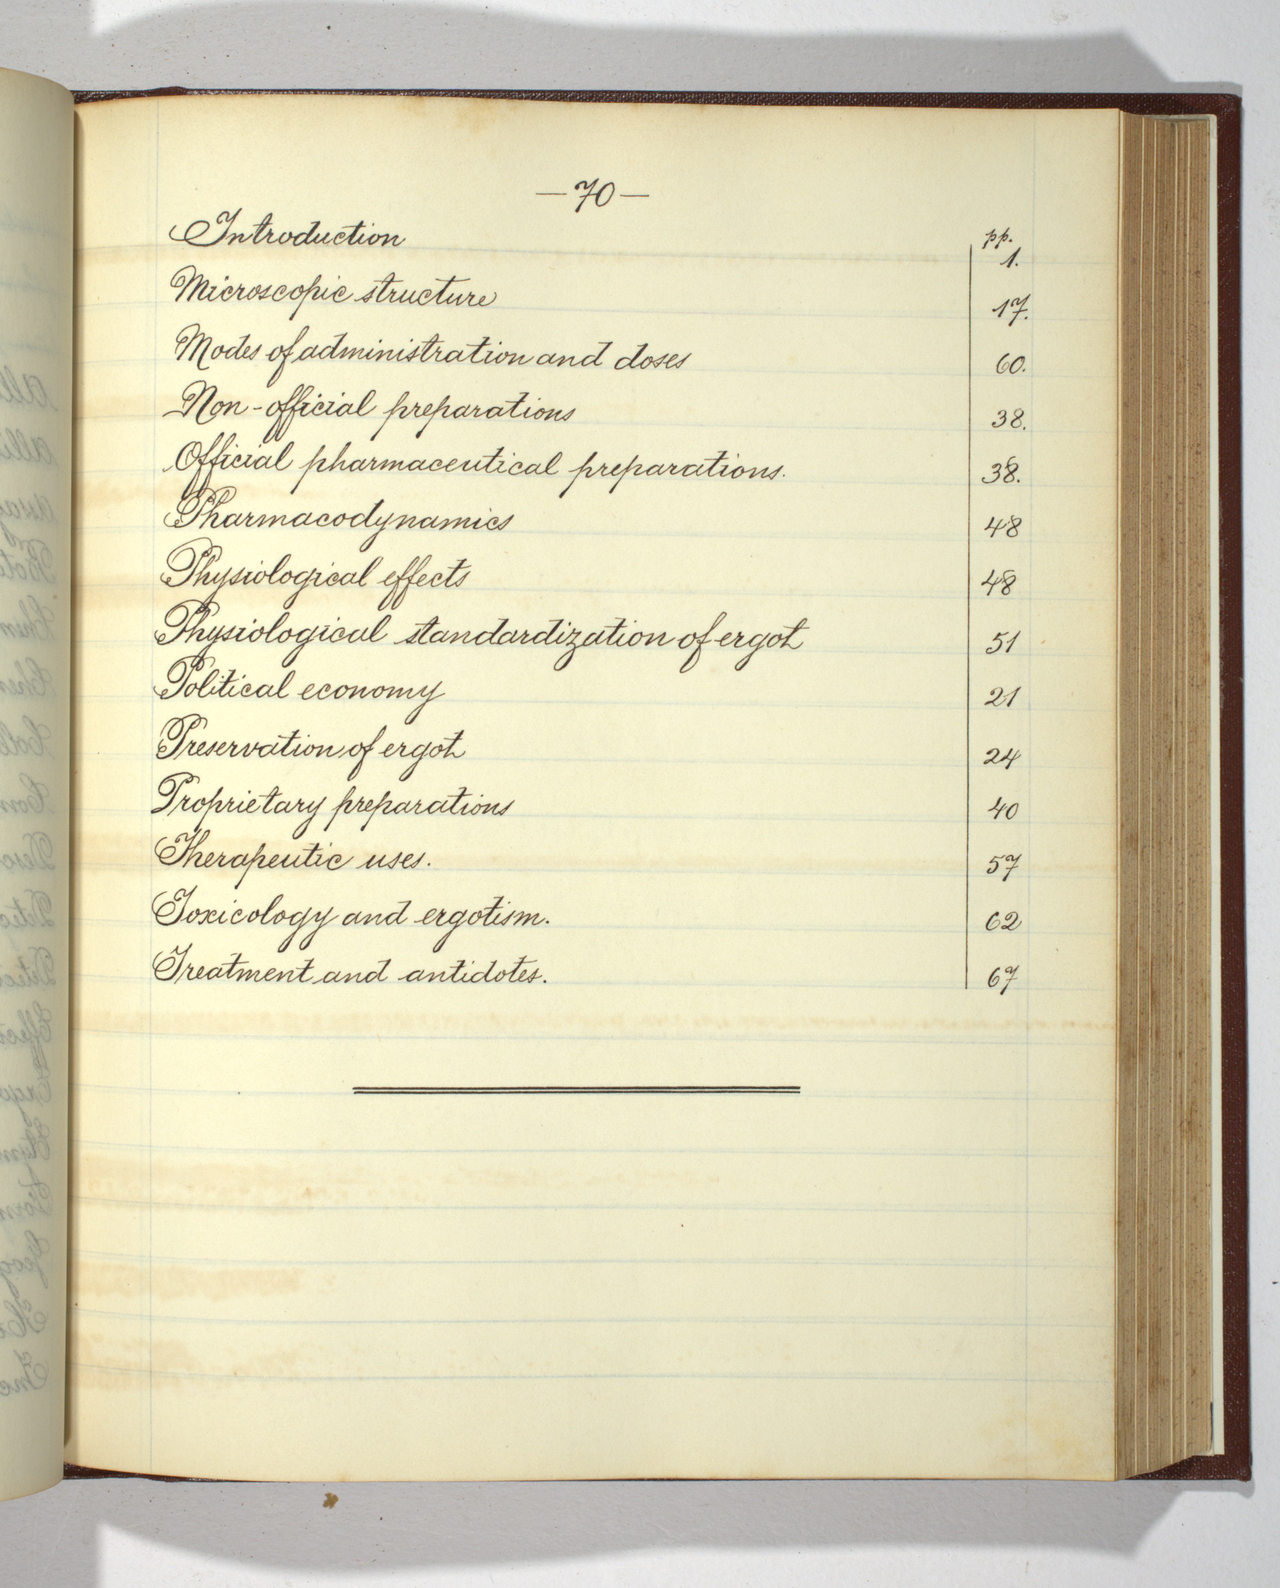 —70—
Introduction pp. 1.
Microscopic structure 17.
Modes of administration and doses 60.
Non-official preparations 38.
Official pharmaceutical preparations. 38.
Pharmacodynamics 48
Physiological effects 48
Physiological standardization of ergot 51
Political economy 21
Preservation of ergot 24
Proprietary preparations 40
Therapeutic uses. 57
Toxicology and ergotism. 62
Treatment and antidotes. 67